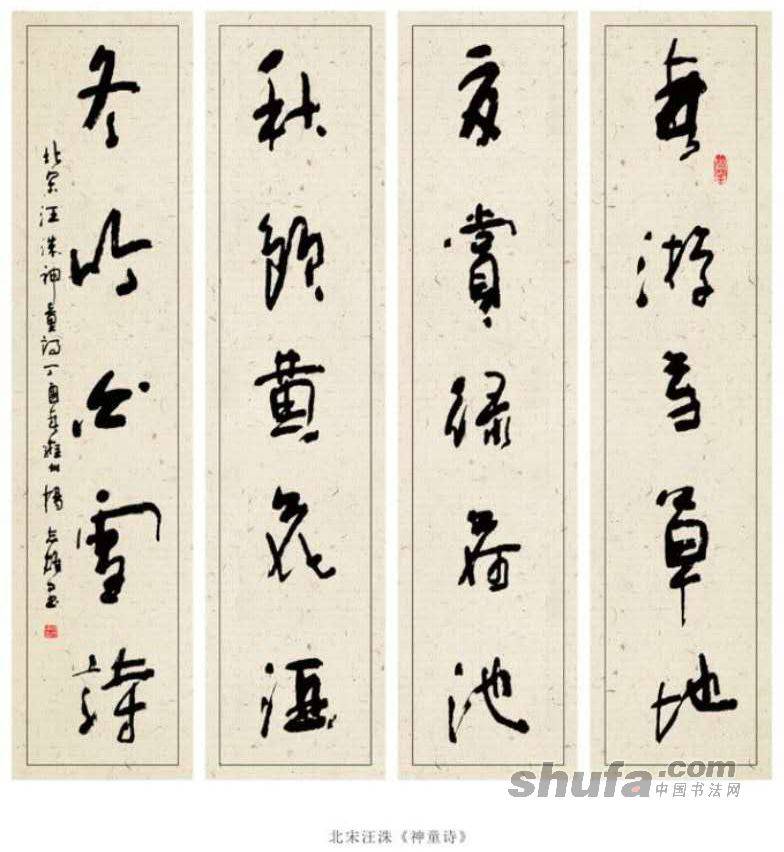 春游芳草地
夏賞綠荷池
秋飲黄花酒
冬吟白雪詩
北宋汪洙神童詩丁酉年
shufa.com
中国书法网
北宋汪洙《神童诗》